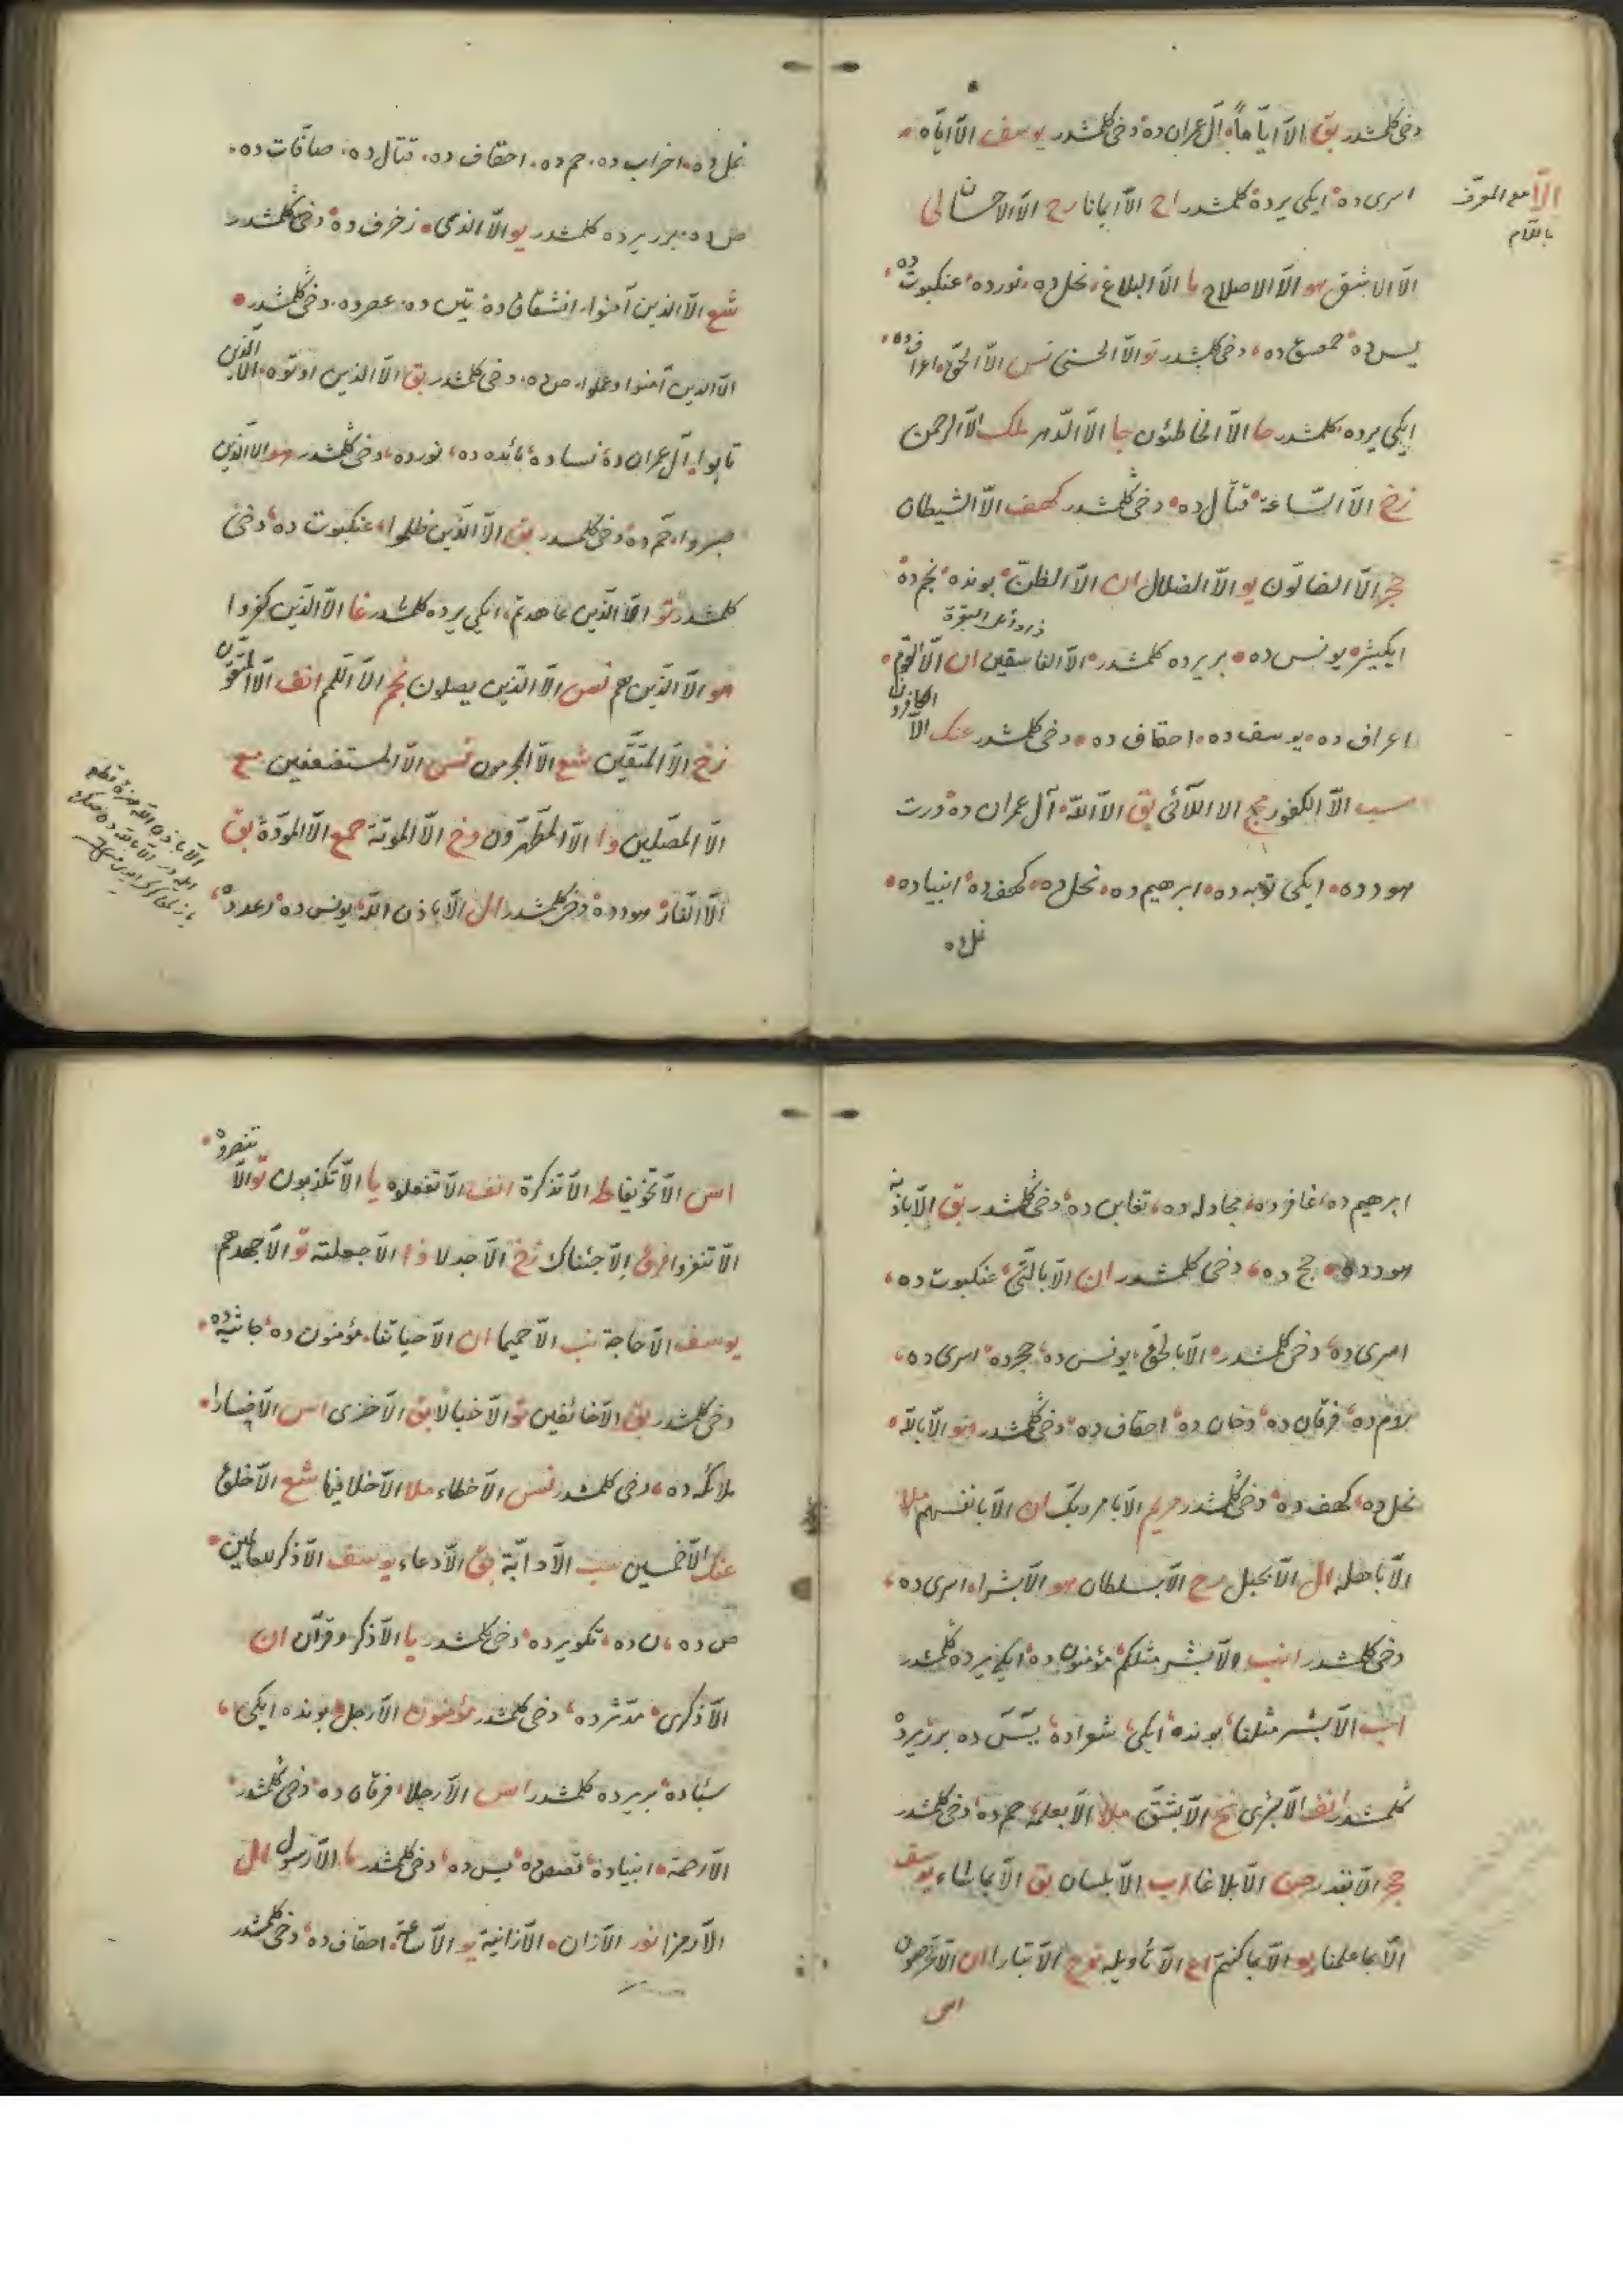 دخی کلمشدر بق الاّ ایّاماً، آل عمران ده دخی کلمشدر یوسف الاّ ایّاه،
اسری ده ایکی یرده کلمشدر اح الاّ ایمانا رح الاّ الاحسان لی
الاّ مع المعرّف باللّام
الاّ الاشقی هو الاّ الاصلاح ما الاّ البلاغ، نحل ده، نور ده، عنکبوت ده،
یس ده حمعسق ده، دخی کلمشدر تو الاّ الحسنی نس الاّ الحقّ، اعراف ده،
ایکی یرده، کلمشدر حا الاّ الخاطئون جا الاّ الدّهر ملک الاّ الرحمن
زخ الاّ السّاعة، قتال ده، دخی کلمشدر کهف الاّ الشیطان
حجر الاّ الضالّون یو الاّ الضلال ان الاّ الظنّ، بونده، نجم ده
ایکیشر، یونس ده، بر یرده کلمشدر، الاّ الفاسقین ان الاّ القوم،
اعراف ده، یوسف ده، احقاف ده، دخی کلمشدر عنک الاّ الکافرون
سب الاّ الکفور مج الا اللّائی بق الاّ اللّه، آل عمران ده درت
هود ده، ایکی توبه ده، ابرهیم ده، نحل ده، کهف ده، انبیا ده،
نمل ده
نمل ده، احزاب ده، حم ده، احقاف ده، قتال ده، صافّات ده،
ص ده، برر یرده کلمشدر یو الاّ الذی، زخرف ده، دخی کلمشدر
شع الاّ الذین آمنوا، انشقاق ده تین ده، عصر ده، دخی کلمشدر،
الاّ الذین آمنوا وعملوا، ص ده، دخی کلمشدر بق الاّ الذین اوتوه، الاّ الذین
تابوا، آل عمران ده نسا ده مائده ده، نور ده، دخی کلمشدر هو الا الّذین
صبروا، حم ده، دخی کلمشدر بق الاّ الّذین ظلموا، عنکبوت ده، دخی
کلمشدر تو الاّ الّذین عاهدتم، ایکی یرده کلمشدر غا الاّ الذین کفروا
هو الاّ الّذین هم نس الاّ الذین یصلون نجم الاّ اللّمم انف الاّ المتّقون
زخ الاّ المتّقین شع الاّ المجرمون نس الاّ المستضعفین مع
الاّ المصلّین وا الاّ المطهّرون دخ الاّ الموتة حمع الاّ المودّة بق
الاّ النّار، هود ده، دخی کلمشدر ال الاّ باذن اللّه، یونس ده، رعد ده،
ابرهیم ده، غافر ده، مجادله ده، تغابن ده، دخی کلمشدر بق الاّ باذنه
هود ده، حج ده، دخی کلمشدر ان الاّ بالّتی، عنکبوت ده،
اسری ده، دخی کلمشدر، الاّ بالحقّ، یونس ده، حجر ده، اسری ده،
روم ده، فرقان ده، دخان ده، احقاف ده، دخی کلمشدر هو الاّ باللّه،
نحل ده، کهف ده، دخی کلمشدر مریم الاّ بامر ربّک ان الاّ بانفسهم ملا
الاّ باهله ال الاّ بحبل رح الاّ بسلطان هو الاّ بشرا، اسری ده،
دخی کلمشدر انب الاّ بشر مثلکم، مؤمنون ده، ایکی یرده کلمشدر
اب الاّ بشر مثلنا، بونده، ایکی، شعرا ده، یس ده برر یرده
کلمشدر انف الاّ بشری نح الاّ بشقّ ملا الاّ بعلمه، حم ده، دخی کلمشدر
حجر الاّ بقدر جن الاّ بلاغا اب الاّ بلسان بق الاّ بما شاء یوسف
الاّ بما علمنا یو الاّ بما کنتم اع الاّ تأویله نوح الاّ تبارا ان الاّ تخرصون
اس
اس الاّ تخویفا طه الاّ تذکرة انف الاّ تفعلوه یا الاّ تکذبون تو الاّ تنصروه،
الاّ تنفروا فرق الاّ جئناک زخ الاّ جدلا ذا الاّ جعلته تو الاّ جهدهم
یوسف الاّ حاجة نب الاّ حمیما ان الاّ حیاتنا، مؤمنون ده، جاثیه ده،
دخی کلمشدر بق الاّ خائفین تو الاّ خبالا بق الاّ خزی اس الاّ خسارا،
ملائکه ده، دخی کلمشدر نس الاّ خطاء ملا الاّ خلا فیها شع الاّ خلق
عنک الاّ خمسین سب الاّ دابّة بق الاّ دعاء یوسف الاّ ذکر للعالمین،
ص ده، ن ده، تکویر ده، دخی کلمشدر یا الاّ ذکر وقرآن ان
الاّ ذکری، مدّثر ده، دخی کلمشدر مؤمنون الاّ رجل، بونده ایکی،
سبا ده، بر یرده کلمشدر اس الاّ رجلا، فرقان ده، دخی کلمشدر،
الاّ رحمة، انبیا ده، قصص ده، یس ده، دخی کلمشدر ما الاّ رسول ال
الاّ رمزا نور الاّ زان، الاّ زانیة یو الاّ ساعة، احقاف ده، دخی کلمشدر